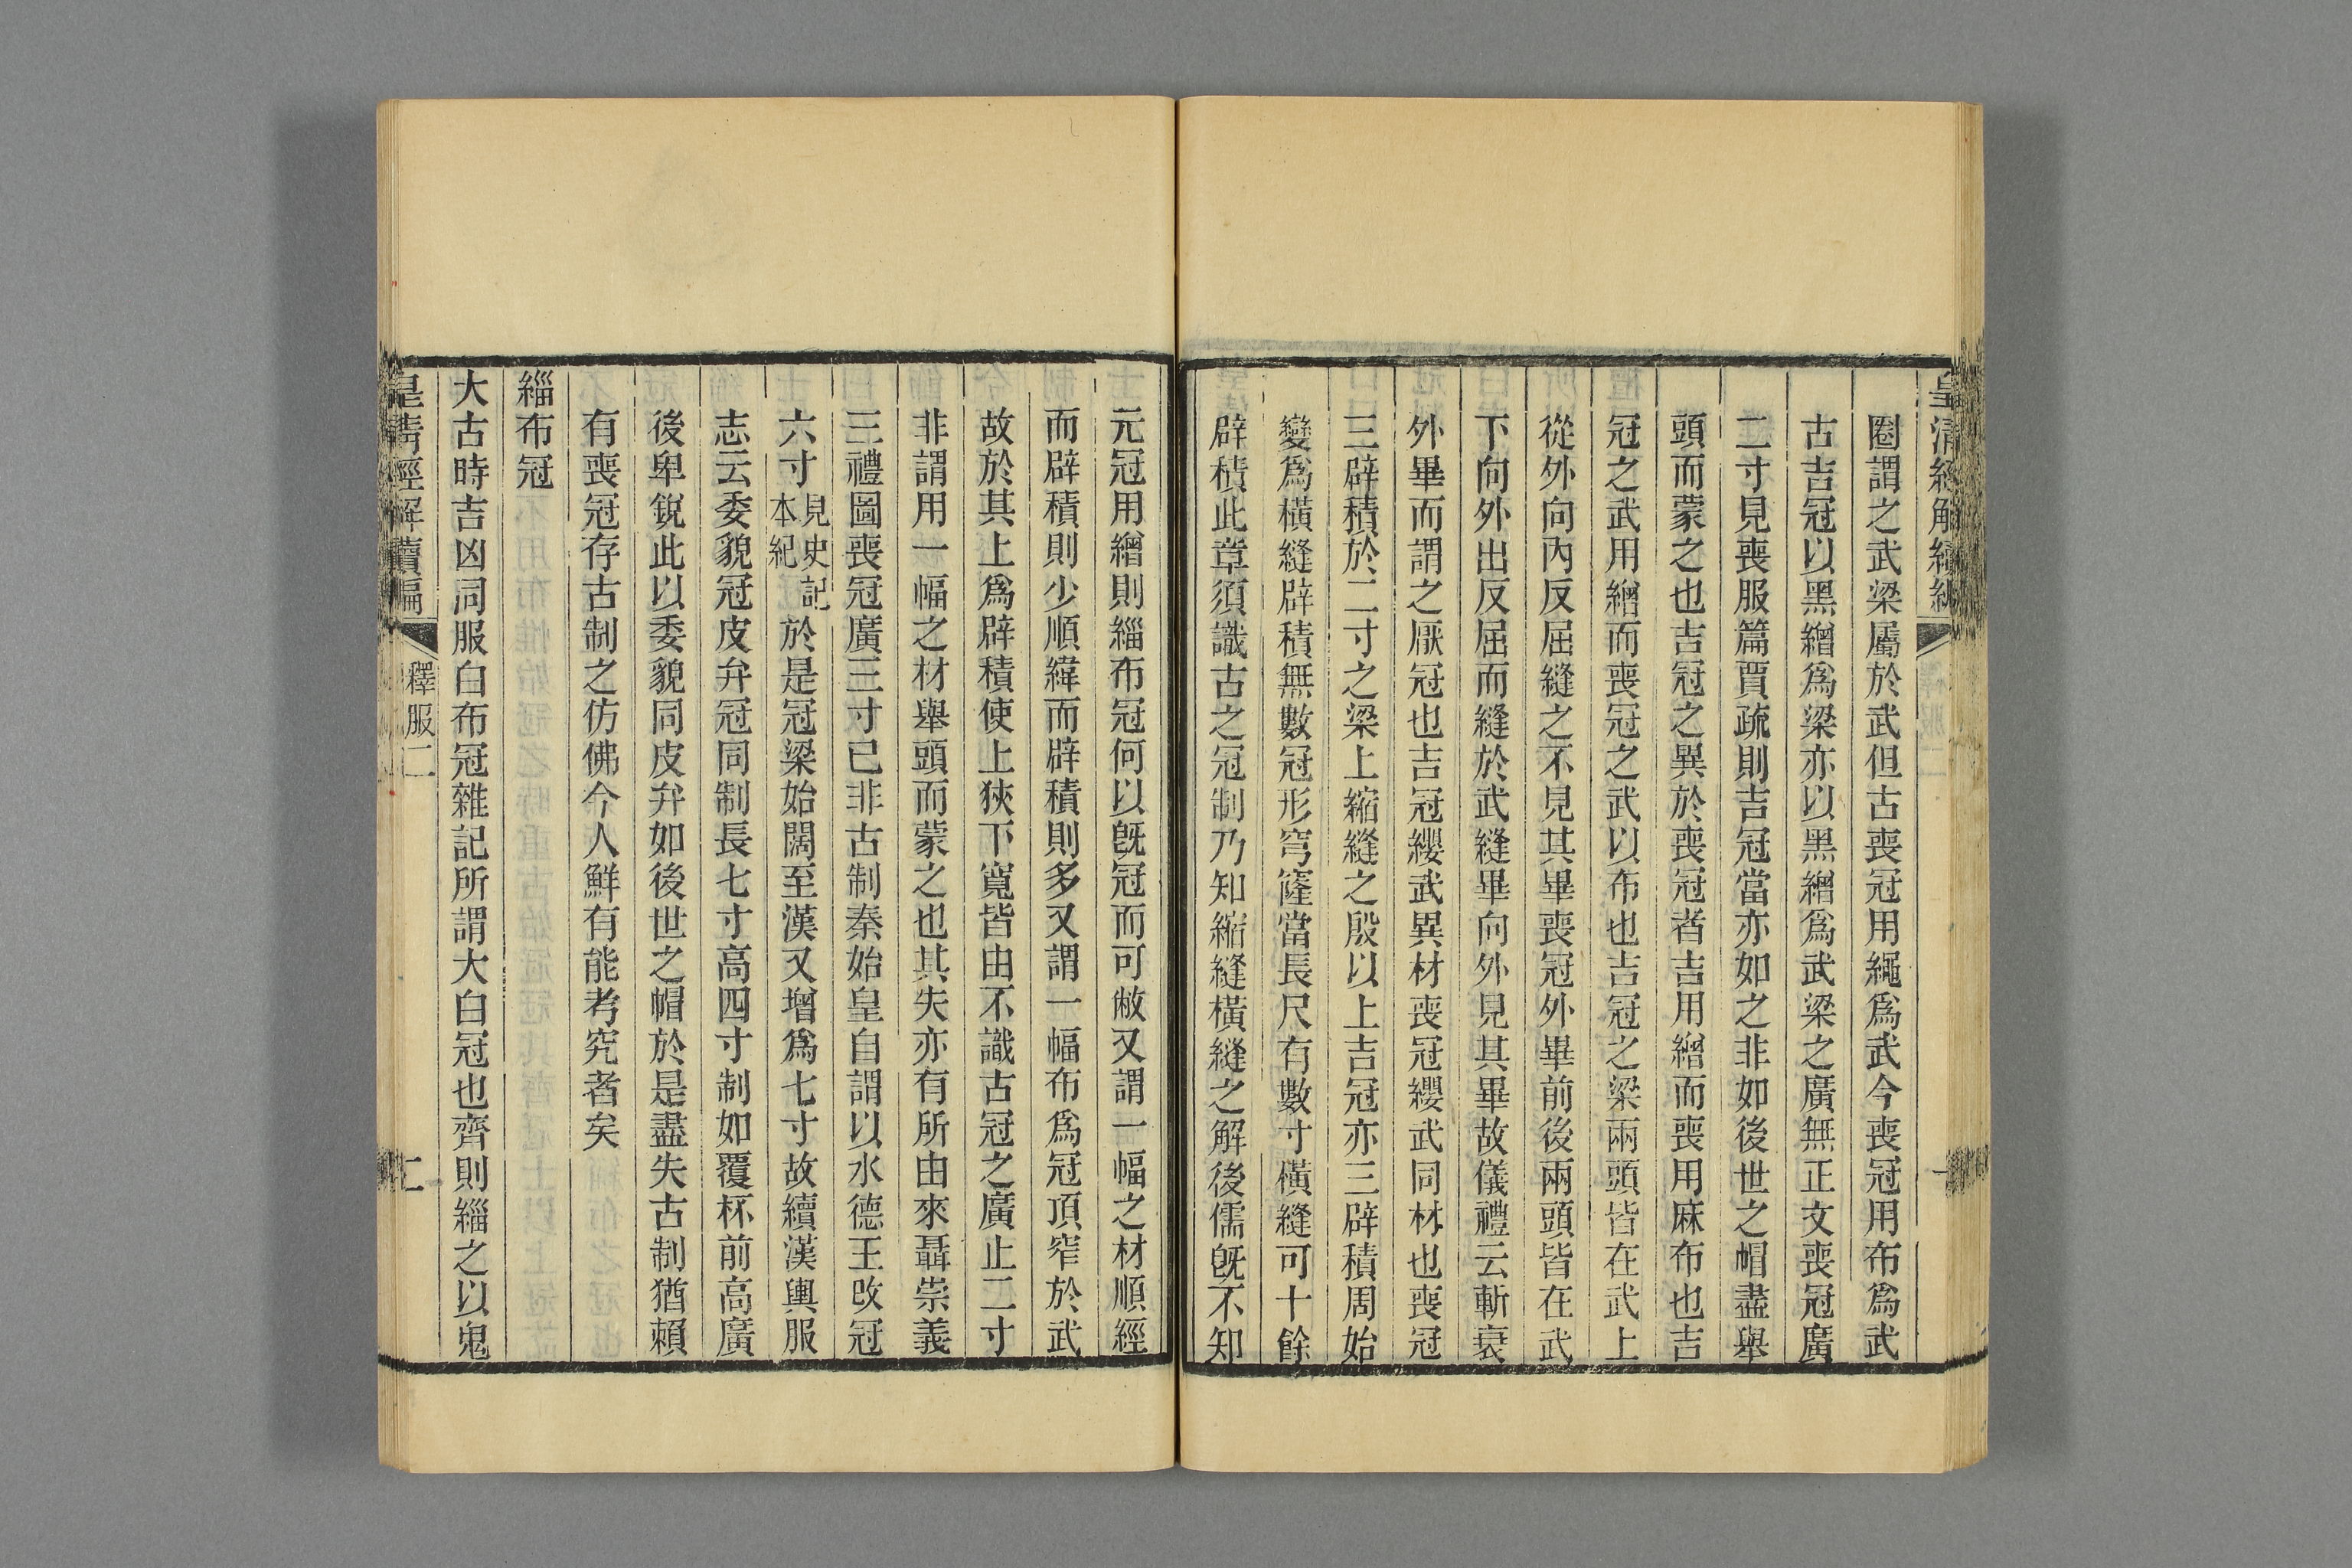 圈謂之武梁屬於武但古喪冠用繩爲武今喪冠用布爲武
古吉冠以黑繒爲梁亦以黑繒爲武梁之廣無正文喪冠廣
二寸見喪服篇賈疏則吉冠當亦如之非如後世之帽盡舉
頭而蒙之也吉冠之異於喪冠者吉用繒而喪用麻布也吉
冠之武用繒而喪冠之武以布也吉冠之梁兩頭皆在武上
從外向內反屈縫之不見其畢喪冠外畢前後兩頭皆在武
下向外出反屈而縫於武縫畢向外見其畢故儀禮云斬衰
外畢而謂之厭冠也吉冠纓武異材喪冠纓武同材也喪冠
三辟積於二寸之梁上縮縫之殷以上吉冠亦三辟積周始
變爲橫縫辟積無數冠形穹窿當長尺有數寸橫縫可十餘
辟積此章須識古之冠制乃知縮縫橫縫之解後儒旣不知
元冠用繒則緇布冠何以旣冠而可敝又謂一幅之材順經
而辟積則少順緯而辟積則多又謂一幅布爲冠頂窄於武
故於其上爲辟積使上狹下寬皆由不識古冠之廣止二寸
非謂用一幅之材舉頭而蒙之也其失亦有所由來聶崇義
三禮圖喪冠廣三寸已非古制秦始皇自謂以水德王改冠
六寸見史記本紀於是冠梁始闊至漢又增爲七寸故續漢輿服
志云委貌冠皮弁冠同制長七寸高四寸制如覆杯前高廣
後卑銳此以委貌同皮弁如後世之帽於是盡失古制猶賴
有喪冠存古制之仿佛今人鮮有能考究者矣
緇布冠
大古時吉凶同服白布冠雜記所謂大白冠也齊則緇之以鬼
皇清經解續編
釋服二
二